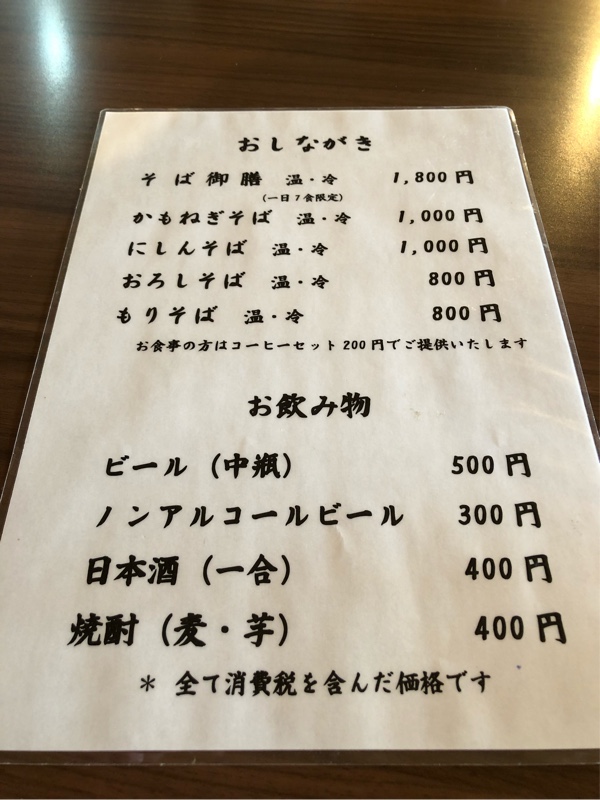 おしながき
そば御膳 温・冷 1,800円
(一日7食限定)
かもねぎそば 温・冷 1,000円
にしんそば 温・冷 1,000円
おろしそば 温・冷 800円
もりそば 温・冷 800円
お食事の方はコーヒーセット200円でご提供いたします
お飲み物
ビール(中瓶) 500円
ノンアルコールビール 300円
日本酒(一合) 400円
焼酎(麦・芋) 400円
＊ 全て消費税を含んだ価格です